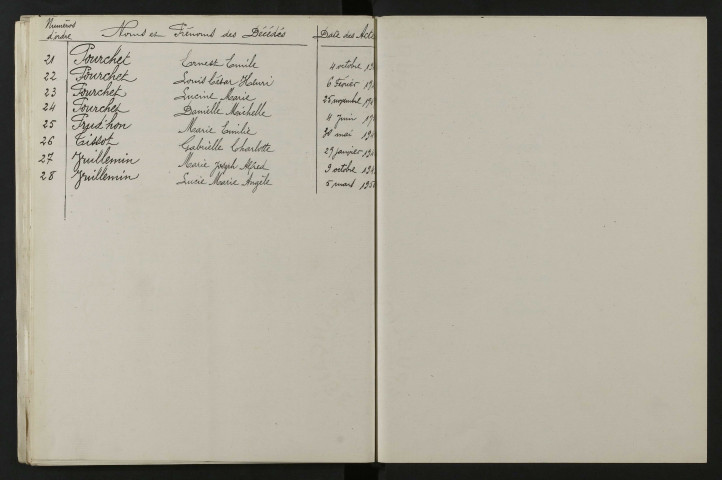 Numéros d'ordre Noms et Prénoms des Décédés Date des Actes
21 Pourchet Ernest Emile 4 octobre
22 Pourchet Louis César Henri 6 Février
23 Pourchet Lucine Marie 25 novembre
24 Pourchet Danielle Machelle 4 juin
25 Prud'hon Marie Emilie 30 mai
26 Tissot Gabrielle Charlotte 29 janvier
27 Vuillemin Marie Joseph Alfred 9 octobre
28 Vuillemin Lucie Marie Angèle 5 mars